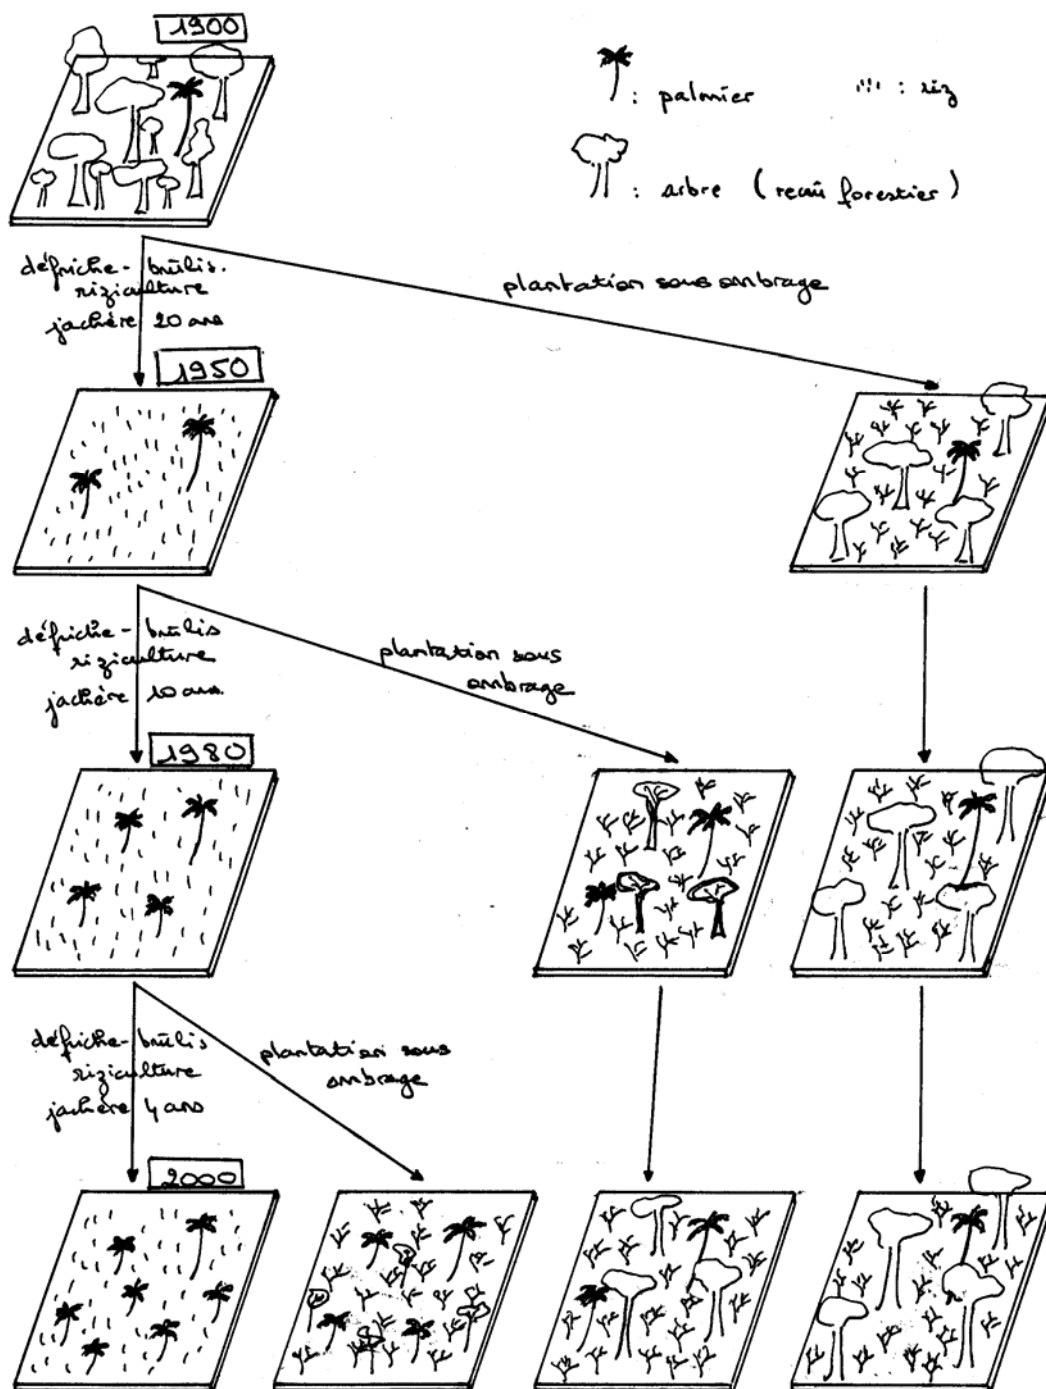 1900
: palmier
: riz
: arbre (recrû forestier)
défriche-brûlis.
riziculture
jachère 20 ans
plantation sous ombrage
1950
défriche-brûlis
riziculture
jachère 10 ans
plantation sous
ombrage
1980
défriche-brûlis
riziculture
jachère 4 ans
plantation sous
ombrage
2000